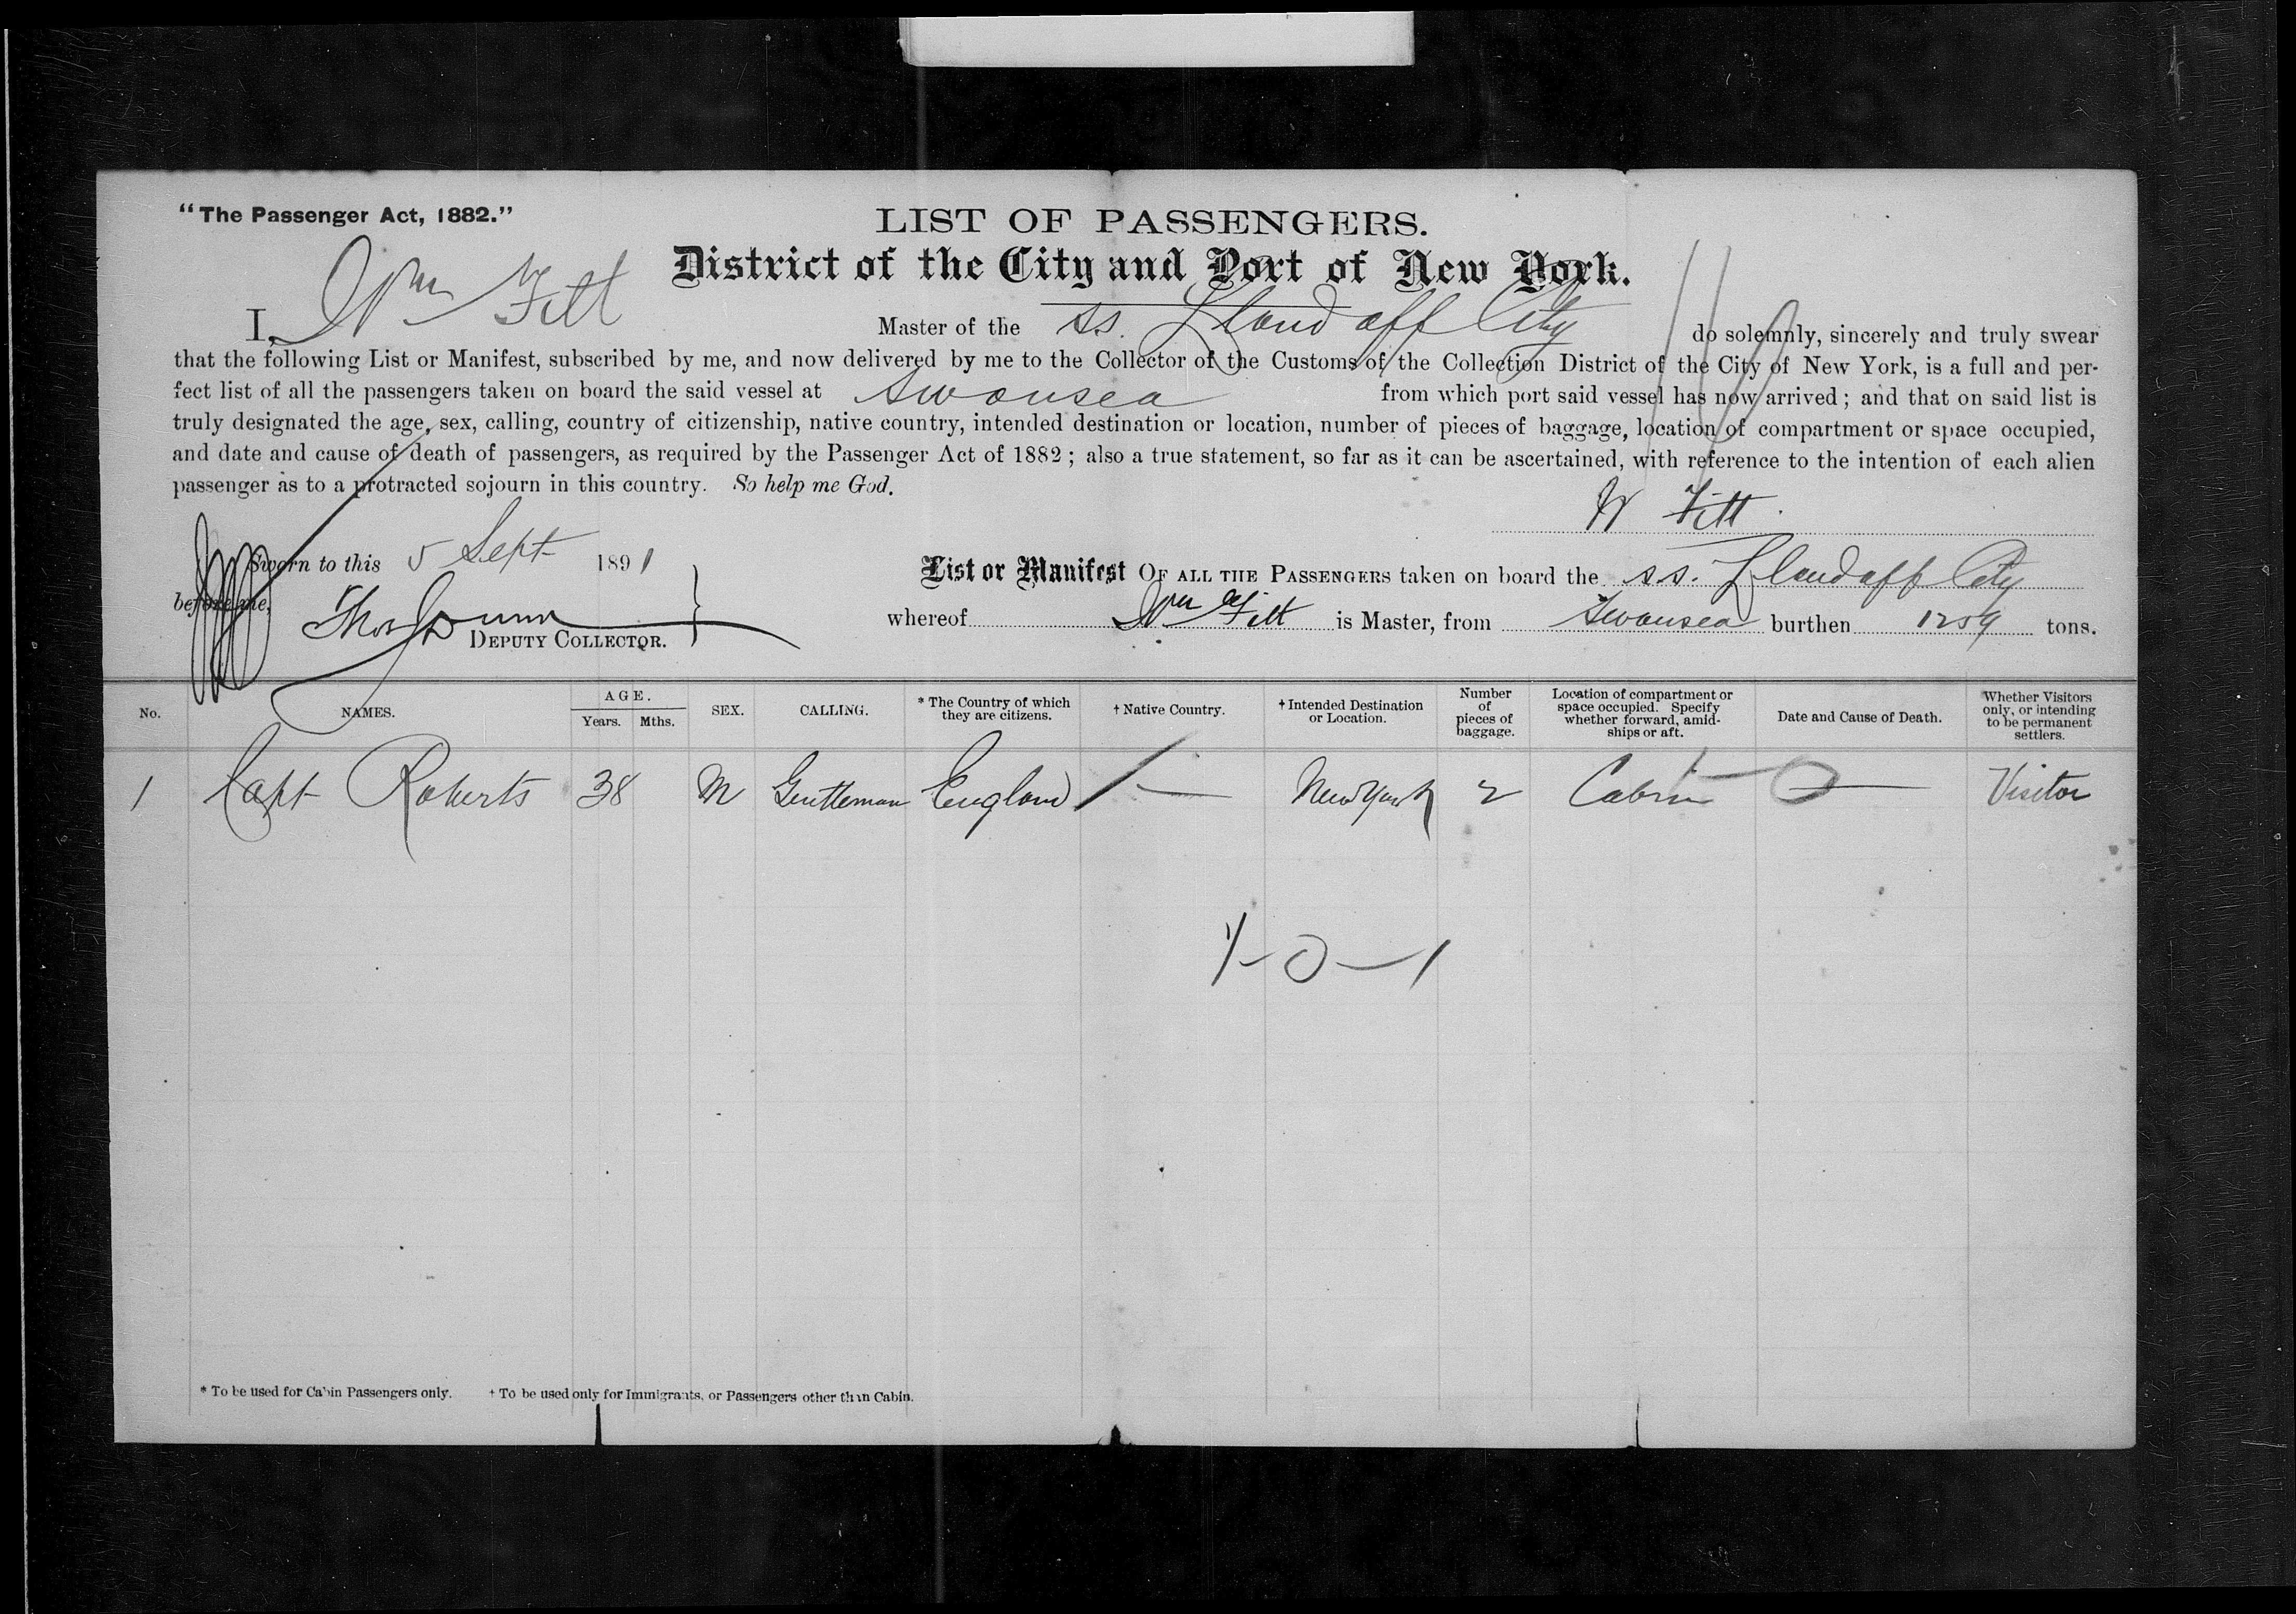 "The Passenger Act, 1882."
LIST OF PASSENGERS.
District of the City and Port of New York.
I, Wm Fitt Master of the ss. Llandaff City do solemnly, sincerely and truly swear
that the following List or Manifest, subscribed by me, and now delivered by me to the Collector of the Customs of the Collection District of the City of New York, is a full and per-
fect list of all the passengers taken on board the said vessel at Swansea from which port said vessel has now arrived; and that on said list is
truly designated the age, sex, calling, country of citizenship, native country, intended destination or location, number of pieces of baggage, location of compartment or space occupied,
and date and cause of death of passengers, as required by the Passenger Act of 1882; also a true statement, so far as it can be ascertained, with reference to the intention of each alien
passenger as to a protracted sojourn in this country. So help me God.
W Fitt
Sworn to this 5 Sept 1891
before me,
Thos Dunn
DEPUTY COLLECTOR.
List or Manifest OF ALL THE PASSENGERS taken on board the ss. Llandaff City
whereof Wm Fitt is Master, from Swansea burthen 1259 tons.
No. NAMES. AGE. Years. Mths. SEX. CALLING. * The Country of which they are citizens. † Native Country. † Intended Destination or Location. Number of pieces of baggage. Location of compartment or space occupied. Specify whether forward, amid-ships or aft. Date and Cause of Death. Whether Visitors only, or intending to be permanent settlers.
1 Capt Roberts 38 M Gentleman England New York 2 Cabin Visitor
1-0-1
* To be used for Cabin Passengers only. † To be used only for Immigrants, or Passengers other than Cabin.